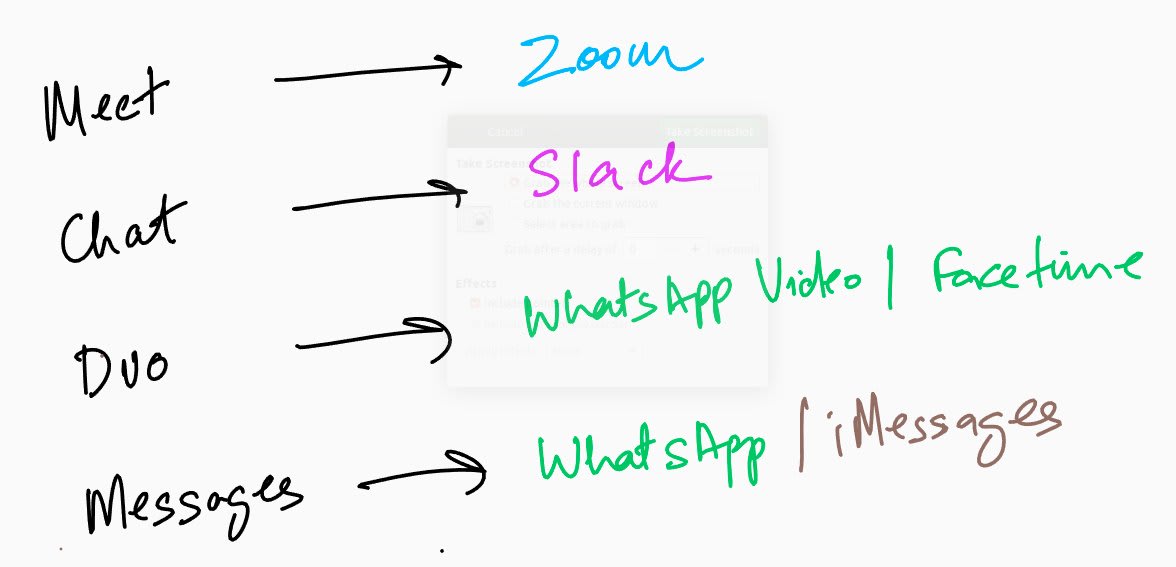 Meet → Zoom
Chat → Slack
Duo → WhatsApp Video | Facetime
Messages → WhatsApp | iMessages
Cancel Take Screenshot
Take Screenshot
Grab the current window
Select area to grab
Grab after a delay of 0 + seconds
Effects